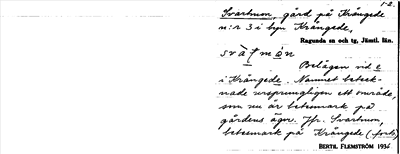 1-2.
Svartmon, gård på Krångede
n:r 3 i byn Krångede,
Ragunda sn och tg, Jämtl. län.
Belägen vid e
i Krångede. Namnet beteck-
nade ursprungligen ett område,
som nu är betesmark på
gårdens ägor. Jfr. Svartmon,
betesmark på Krångede (forts)
BERTIL FLEMSTRÖM 193